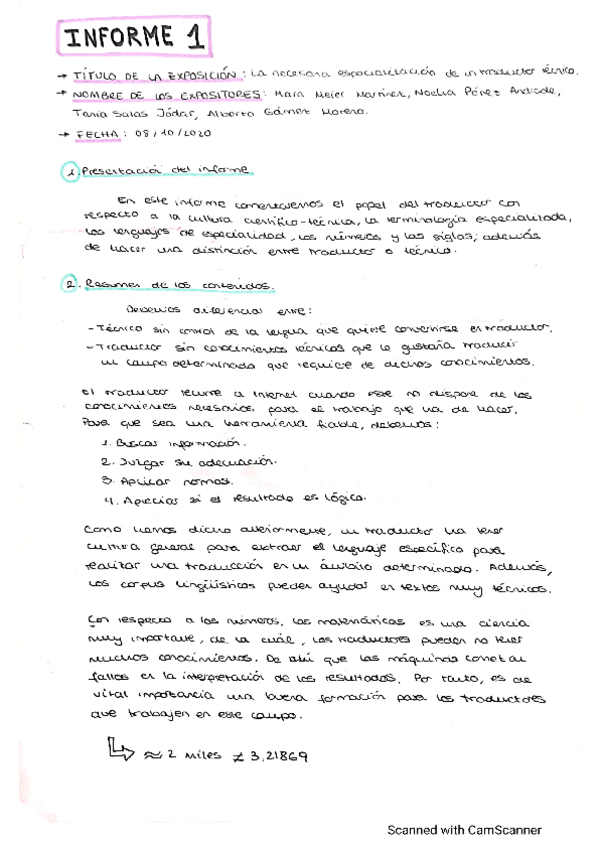 INFORME 1
→ TÍTULO DE LA EXPOSICIÓN: La necesaria especialización de un traductor técnico.
→ NOMBRE DE LOS EXPOSITORES: Mara Meier Martínez, Noelia Pérez Andrade,
Tania Salas Jódar, Alberto Gámez Moreno.
→ FECHA: 08/10/2020
1. Presentación del informe.
En este informe comentaremos el papel del traductor con
respecto a la cultura científico-técnica, la terminología especializada,
los lenguajes de especialidad, los números y las siglas; además
de hacer una distinción entre traductor o técnico.
2. Resumen de los contenidos.
Debemos diferenciar entre:
- Técnico sin control de la lengua que quiere convertirse en traductor.
- Traductor sin conocimientos técnicos que le gustaría traducir
un campo determinado que requiere de dichos conocimientos.
El traductor recurre a Internet cuando este no dispone de los
conocimientos necesarios para el trabajo que ha de hacer.
Para que sea una herramienta fiable, debemos:
1. Buscar información.
2. Juzgar su adecuación.
3. Aplicar normas.
4. Apreciar si el resultado es lógico.
Como hemos dicho anteriormente, un traductor ha tener
cultura general para extraer el lenguaje específico para
realizar una traducción en un ámbito determinado. Además,
los corpus lingüísticos pueden ayudar en textos muy técnicos.
Con respecto a los números, las matemáticas es una ciencia
muy importante, de la cuál, los traductores pueden no tener
muchos conocimientos. De ahí que las máquinas cometan
fallos en la interpretación de los resultados. Por tanto, es de
vital importancia una buena formación para los traductores
que trabajen en este campo.
≈ 2 miles ≠ 3,21869
Scanned with CamScanner